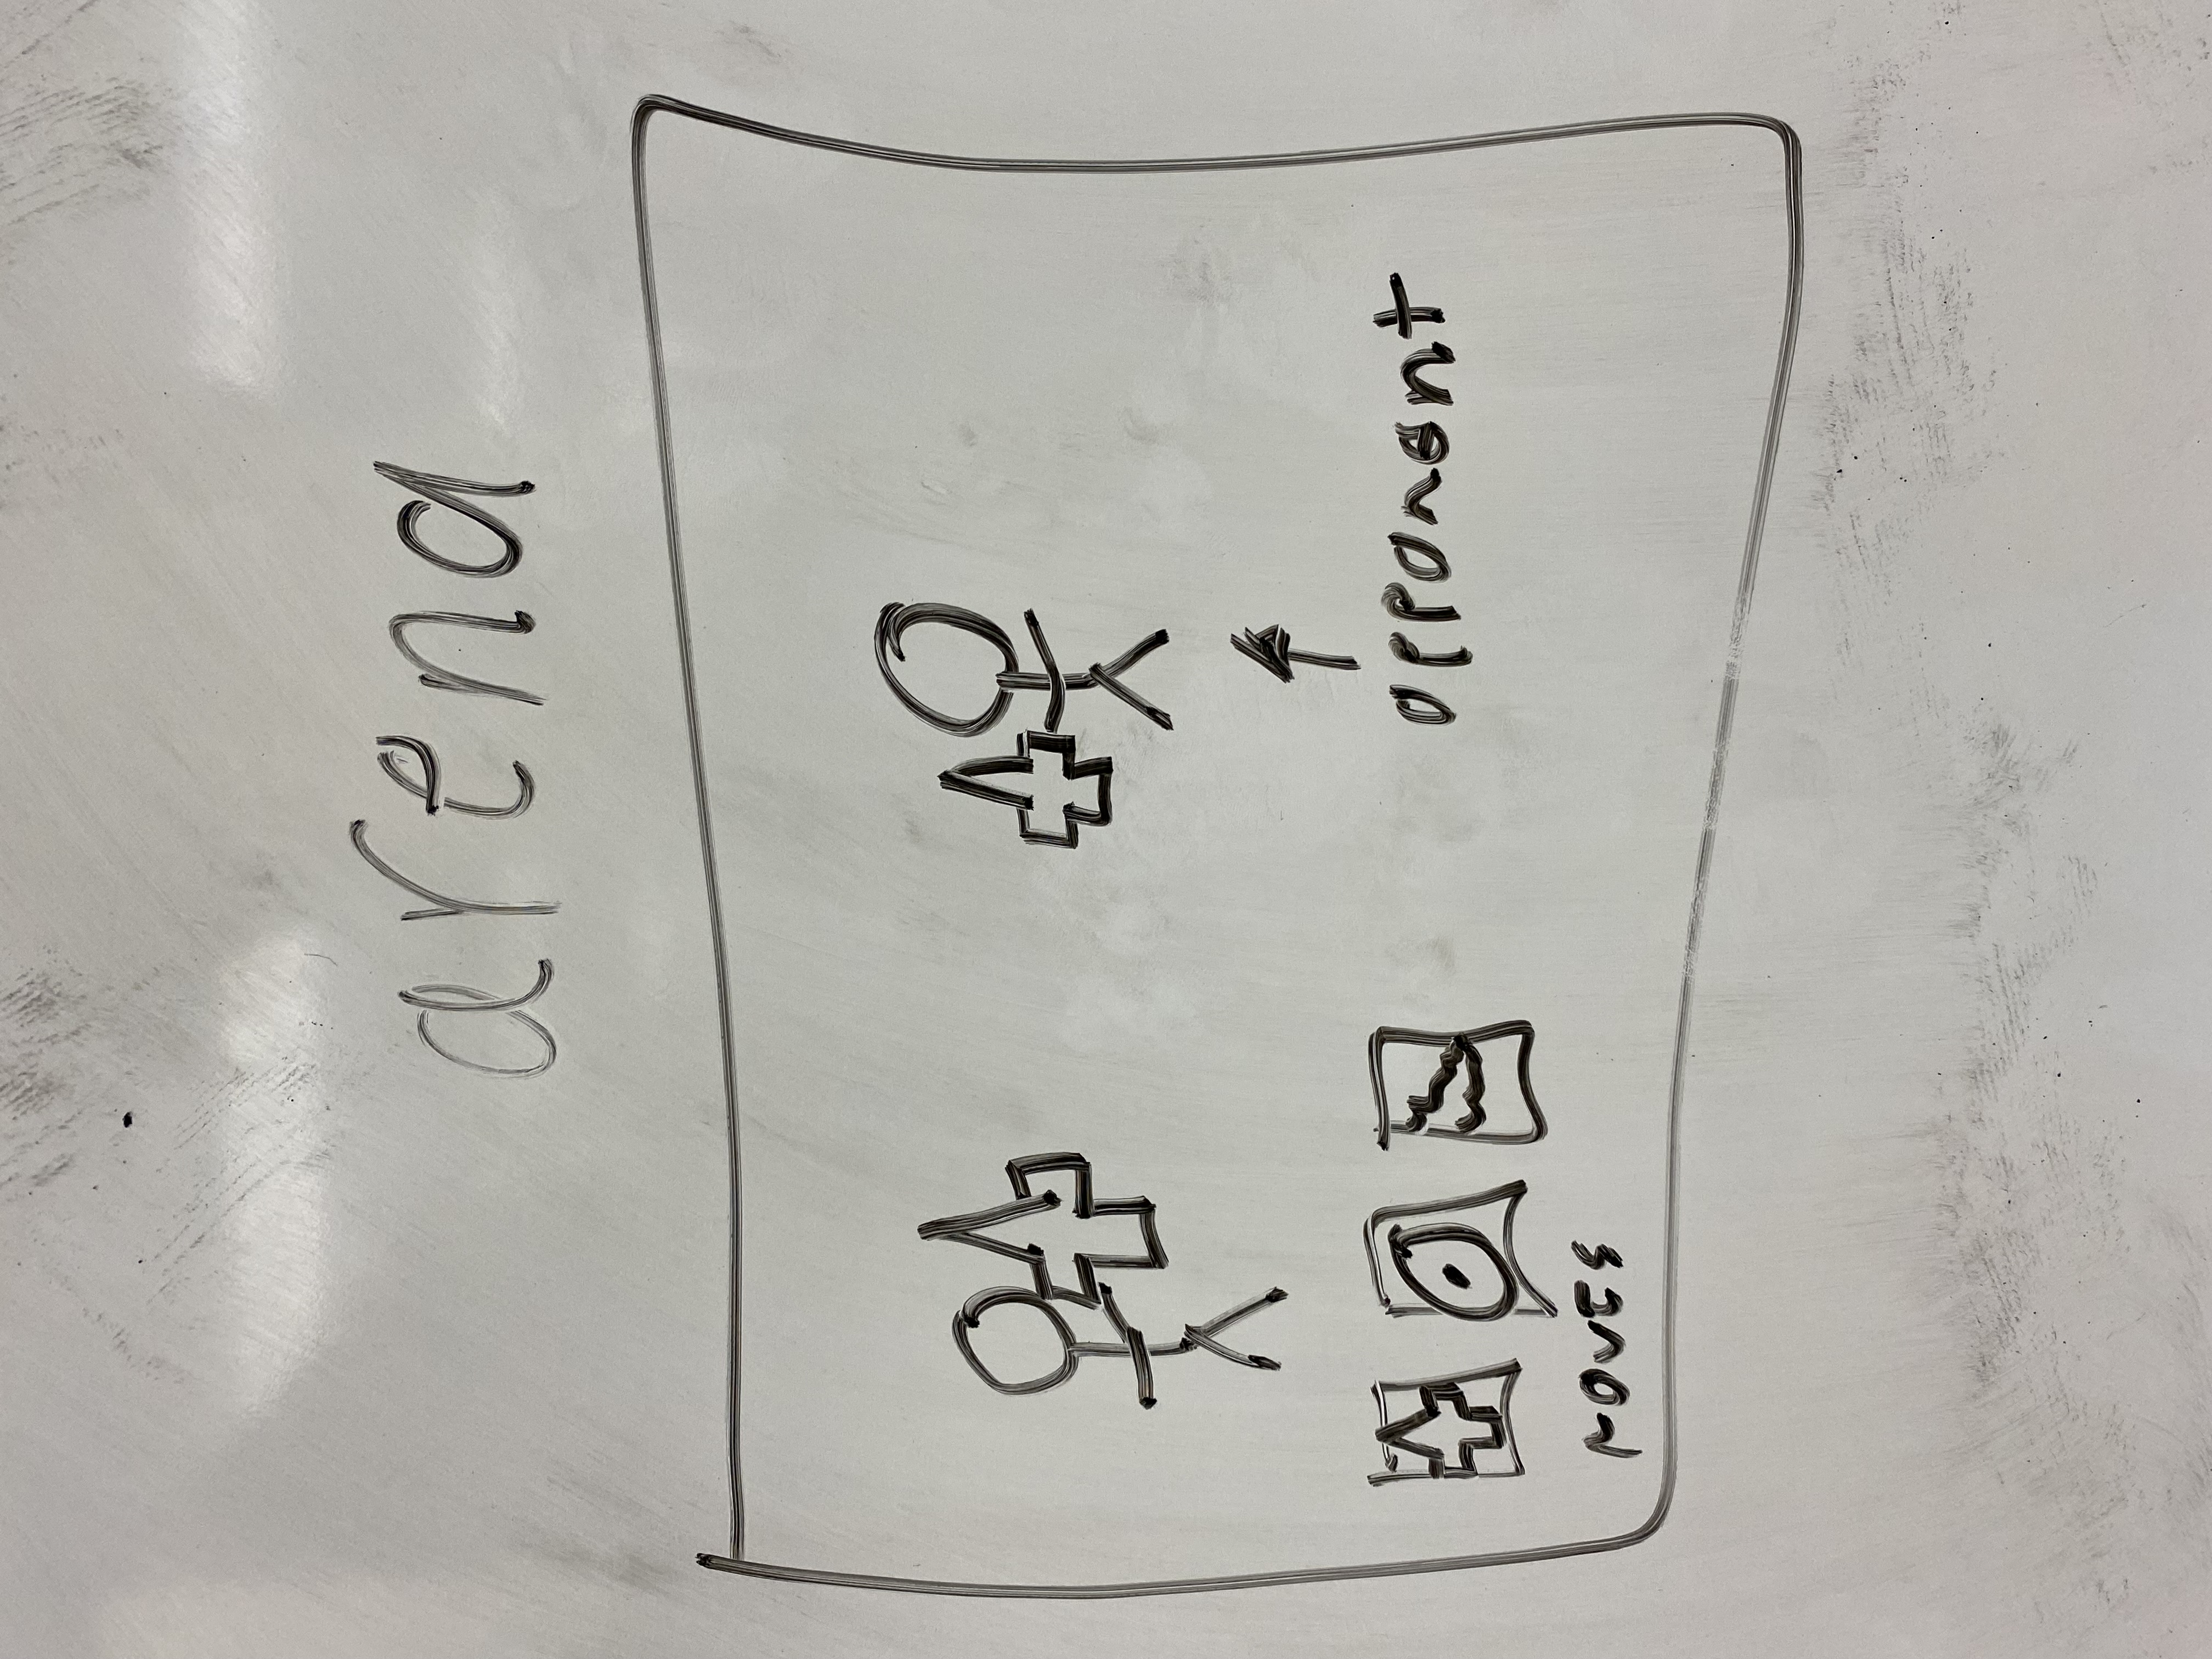 arena
opponent
moves